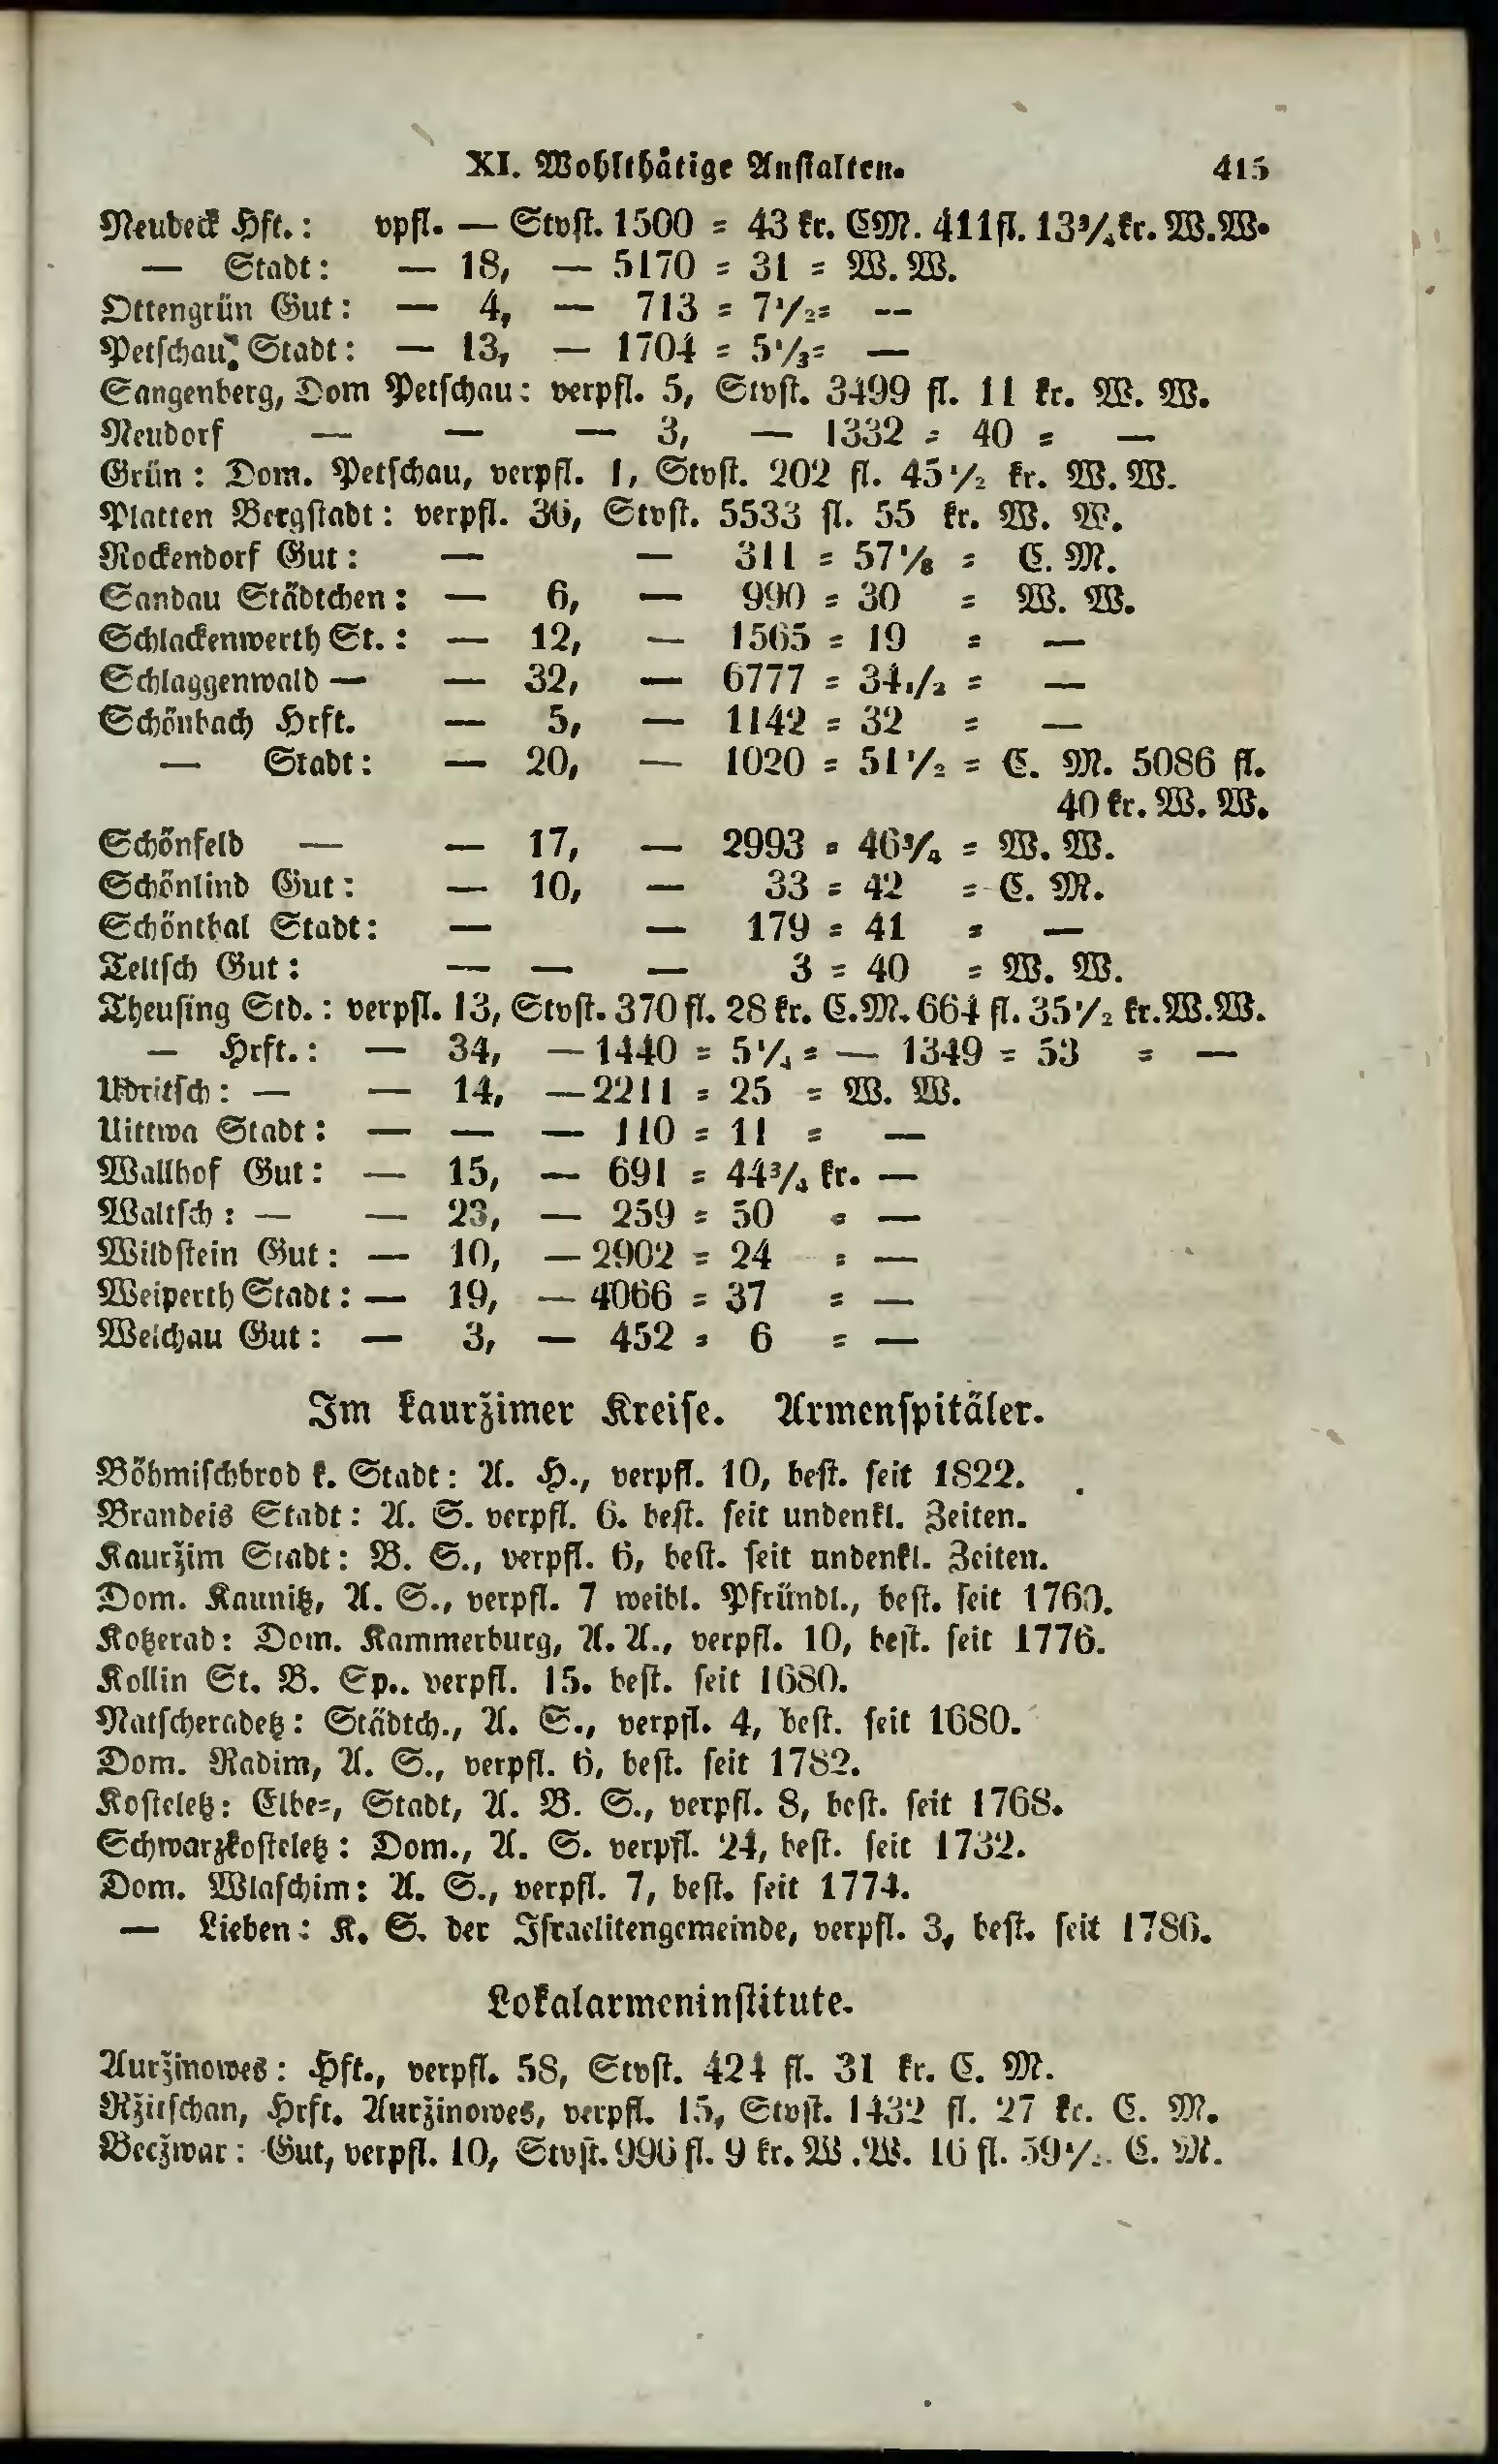 XI. Wohlthätige Anstalten. 415
Neudeck Hft.: vpfl. — Stvst. 1500 = 43 kr. CM. 411fl. 13¾kr. W.W.
— Stadt: — 18, — 5170 = 31 = W. W.
Ottengrün Gut: — 4, — 713 = 7½= --
Petschau, Stadt: — 13, — 1704 = 5⅓= —
Sangenberg, Dom Petschau: verpfl. 5, Stvst. 3499 fl. 11 kr. W. W.
Neudorf — — — 3, — 1332 = 40 = —
Grün: Dom. Petschau, verpfl. 1, Stvst. 202 fl. 45½ kr. W. W.
Platten Bergstadt: verpfl. 36, Stvst. 5533 fl. 55 kr. W. W.
Rockendorf Gut: — — 311 = 57⅛ = C. M.
Sandau Städtchen: — 6, — 990 = 30 = W. W.
Schlackenwerth St.: — 12, — 1565 = 19 = —
Schlaggenwald — — 32, — 6777 = 34½ = —
Schönbach Hrft. — 5, — 1142 = 32 = —
— Stadt: — 20, — 1020 = 51½ = C. M. 5086 fl.
40 kr. W. W.
Schönfeld — — 17, — 2993 = 46¾ = W. W.
Schönlind Gut: — 10, — 33 = 42 = C. M.
Schönthal Stadt: — — 179 = 41 = —
Teltsch Gut: — — — 3 = 40 = W. W.
Theusing Std.: verpfl. 13, Stvst. 370 fl. 28 kr. C.M. 664 fl. 35½ kr. W.W.
— Hrft.: — 34, — 1440 = 5¼ = — 1349 = 53 = —
Udritsch: — — 14, — 2211 = 25 = W. W.
Uittwa Stadt: — — — 110 = 11 = —
Wallhof Gut: — 15, — 691 = 44¾ kr. —
Waltsch: — — 23, — 259 = 50 = —
Wildstein Gut: — 10, — 2902 = 24 = —
Weiperth Stadt: — 19, — 4066 = 37 = —
Welchau Gut: — 3, — 452 = 6 = —
Im kauržimer Kreise. Armenspitäler.
Böhmischbrod k. Stadt: A. H., verpfl. 10, best. seit 1822.
Brandeis Stadt: A. S. verpfl. 6. best. seit undenkl. Zeiten.
Kauržim Stadt: B. S., verpfl. 6, best. seit undenkl. Zeiten.
Dom. Kaunitz, A. S., verpfl. 7 weibl. Pfründl., best. seit 1760.
Kotzerad: Dom. Kammerburg, A. A., verpfl. 10, best. seit 1776.
Kollin St. B. Sp.. verpfl. 15. best. seit 1680.
Natscheradetz: Städtch., A. S., verpfl. 4, best. seit 1680.
Dom. Radim, A. S., verpfl. 6, best. seit 1782.
Kosteletz: Elbe=, Stadt, A. B. S., verpfl. 8, best. seit 1768.
Schwarzkosteletz: Dom., A. S. verpfl. 24, best. seit 1732.
Dom. Wlaschim: A. S., verpfl. 7, best. seit 1774.
— Lieben: K. S. der Israelitengemeinde, verpfl. 3, best. seit 1786.
Lokalarmeninstitute.
Auržinowes: Hft., verpfl. 58, Stvst. 424 fl. 31 kr. C. M.
Ržitschan, Hrft. Auržinowes, verpfl. 15, Stvst. 1432 fl. 27 kr. C. M.
Beržwar: Gut, verpfl. 10, Stvst. 996 fl. 9 kr. W .W. 16 fl. C. M.